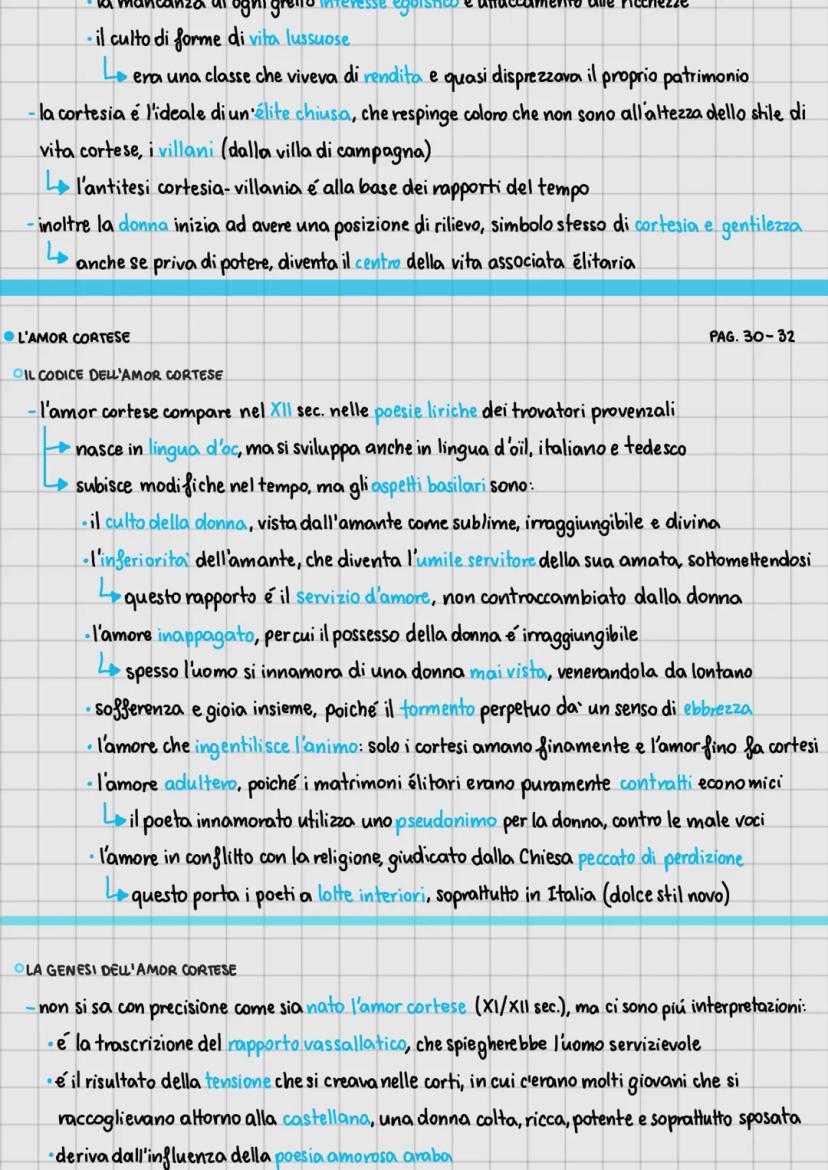 · la mancanza di ogni gretto interesse egoistico e attaccamento alle ricchezze
· il culto di forme di vita lussuose
era una classe che viveva di rendita e quasi disprezzava il proprio patrimonio
- la cortesia é l'ideale di un'élite chiusa, che respinge coloro che non sono all'altezza dello stile di
vita cortese, i villani (dalla villa di campagna)
l'antitesi cortesia-villania é alla base dei rapporti del tempo
- inoltre la donna inizia ad avere una posizione di rilievo, simbolo stesso di cortesia e gentilezza
anche se priva di potere, diventa il centro della vita associata élitaria
L'AMOR CORTESE PAG. 30-32
IL CODICE DELL'AMOR CORTESE
- l'amor cortese compare nel XII sec. nelle poesie liriche dei trovatori provenzali
nasce in lingua d'oc, ma si sviluppa anche in lingua d'oïl, italiano e tedesco
subisce modifiche nel tempo, ma gli aspetti basilari sono:
· il culto della donna, vista dall'amante come sublime, irraggiungibile e divina
· l'inferiorità dell'amante, che diventa l'umile servitore della sua amata, sottomettendosi
questo rapporto é il servizio d'amore, non contraccambiato dalla donna
· l'amore inappagato, per cui il possesso della donna é irraggiungibile
spesso l'uomo si innamora di una donna mai vista, venerandola da lontano
· sofferenza e gioia insieme, poiché il tormento perpetuo da' un senso di ebbrezza
· l'amore che ingentilisce l'animo: solo i cortesi amano finamente e l'amor fino fa cortesi
· l'amore adultero, poiché i matrimoni élitari erano puramente contratti economici
il poeta innamorato utilizza uno pseudonimo per la donna, contro le male voci
· l'amore in conflitto con la religione, giudicato dalla Chiesa peccato di perdizione
questo porta i poeti a lotte interiori, soprattutto in Italia (dolce stil novo)
LA GENESI DELL'AMOR CORTESE
- non si sa con precisione come sia nato l'amor cortese (XI/XII sec.), ma ci sono piú interpretazioni:
· é la trascrizione del rapporto vassallatico, che spiegherebbe l'uomo servizievole
· é il risultato della tensione che si creava nelle corti, in cui c'erano molti giovani che si
raccoglievano attorno alla castellana, una donna colta, ricca, potente e soprattutto sposata
· deriva dall'influenza della poesia amorosa araba